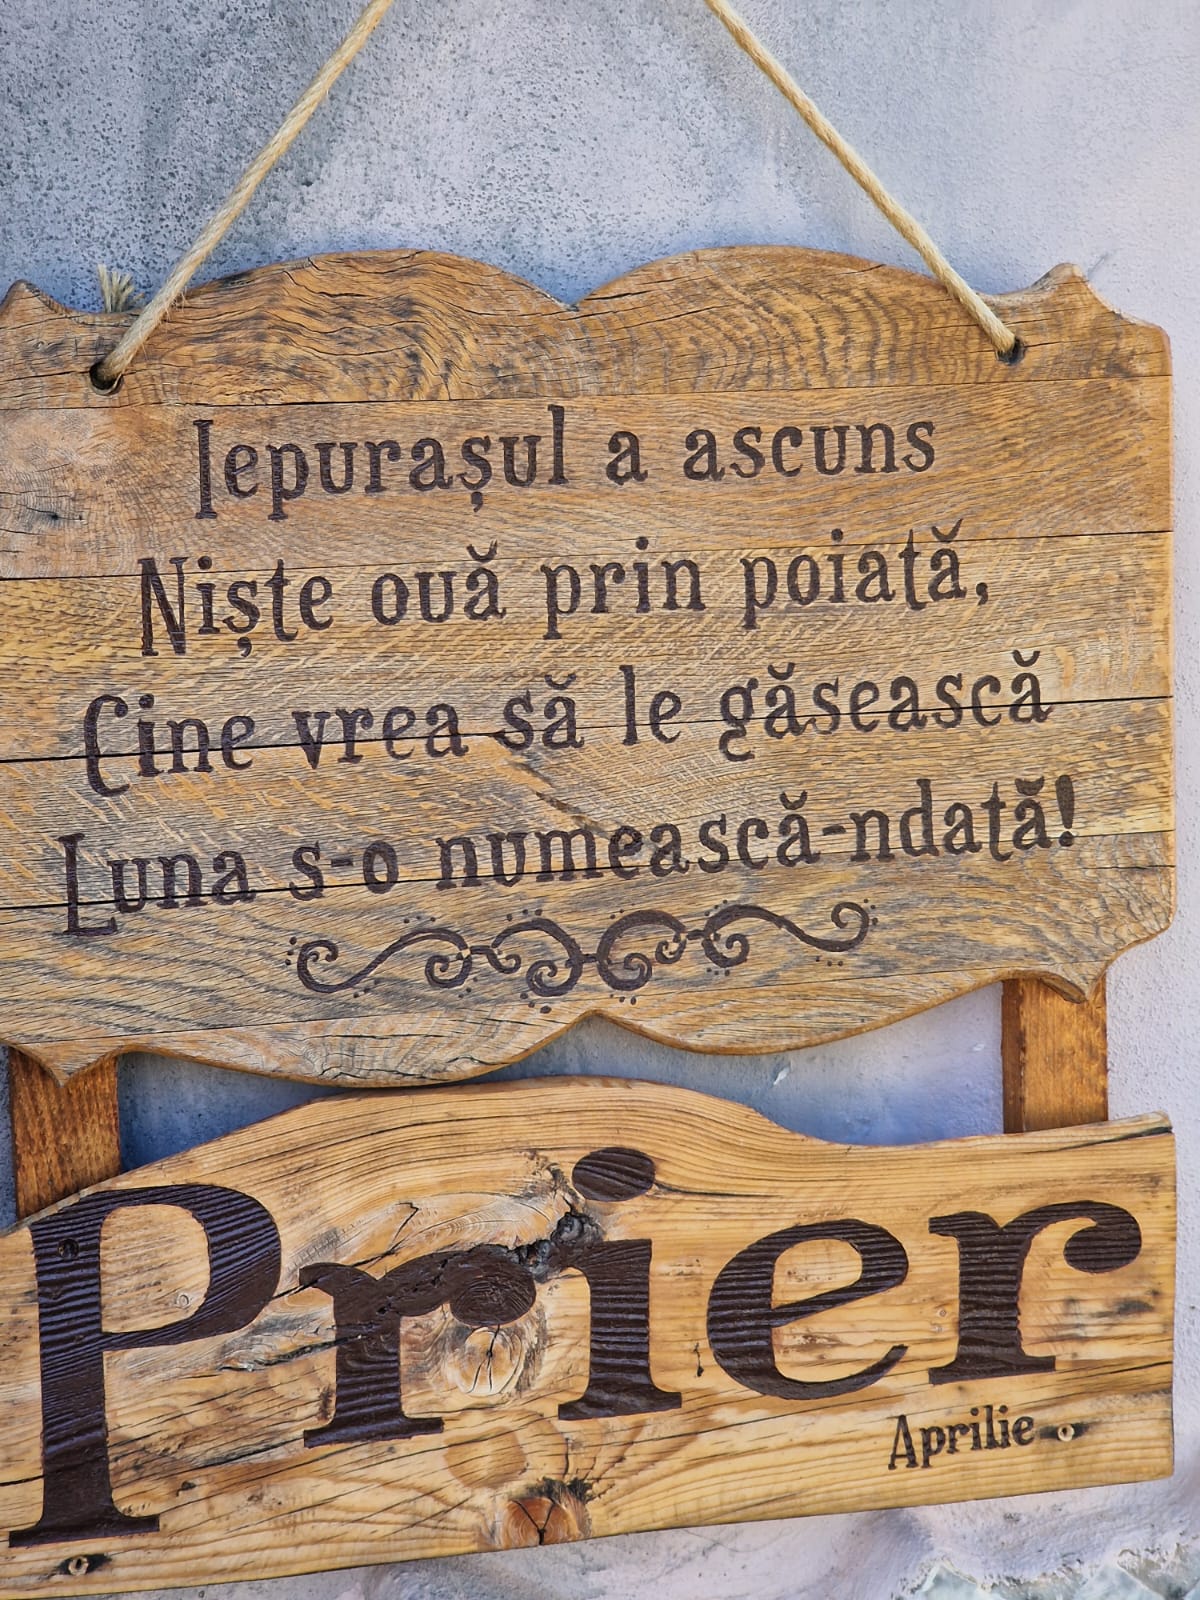 Iepurașul a ascuns
Niște ouă prin poiată,
Cine vrea să le găsească
Luna s-o numească-ndată!
Prier
Aprilie